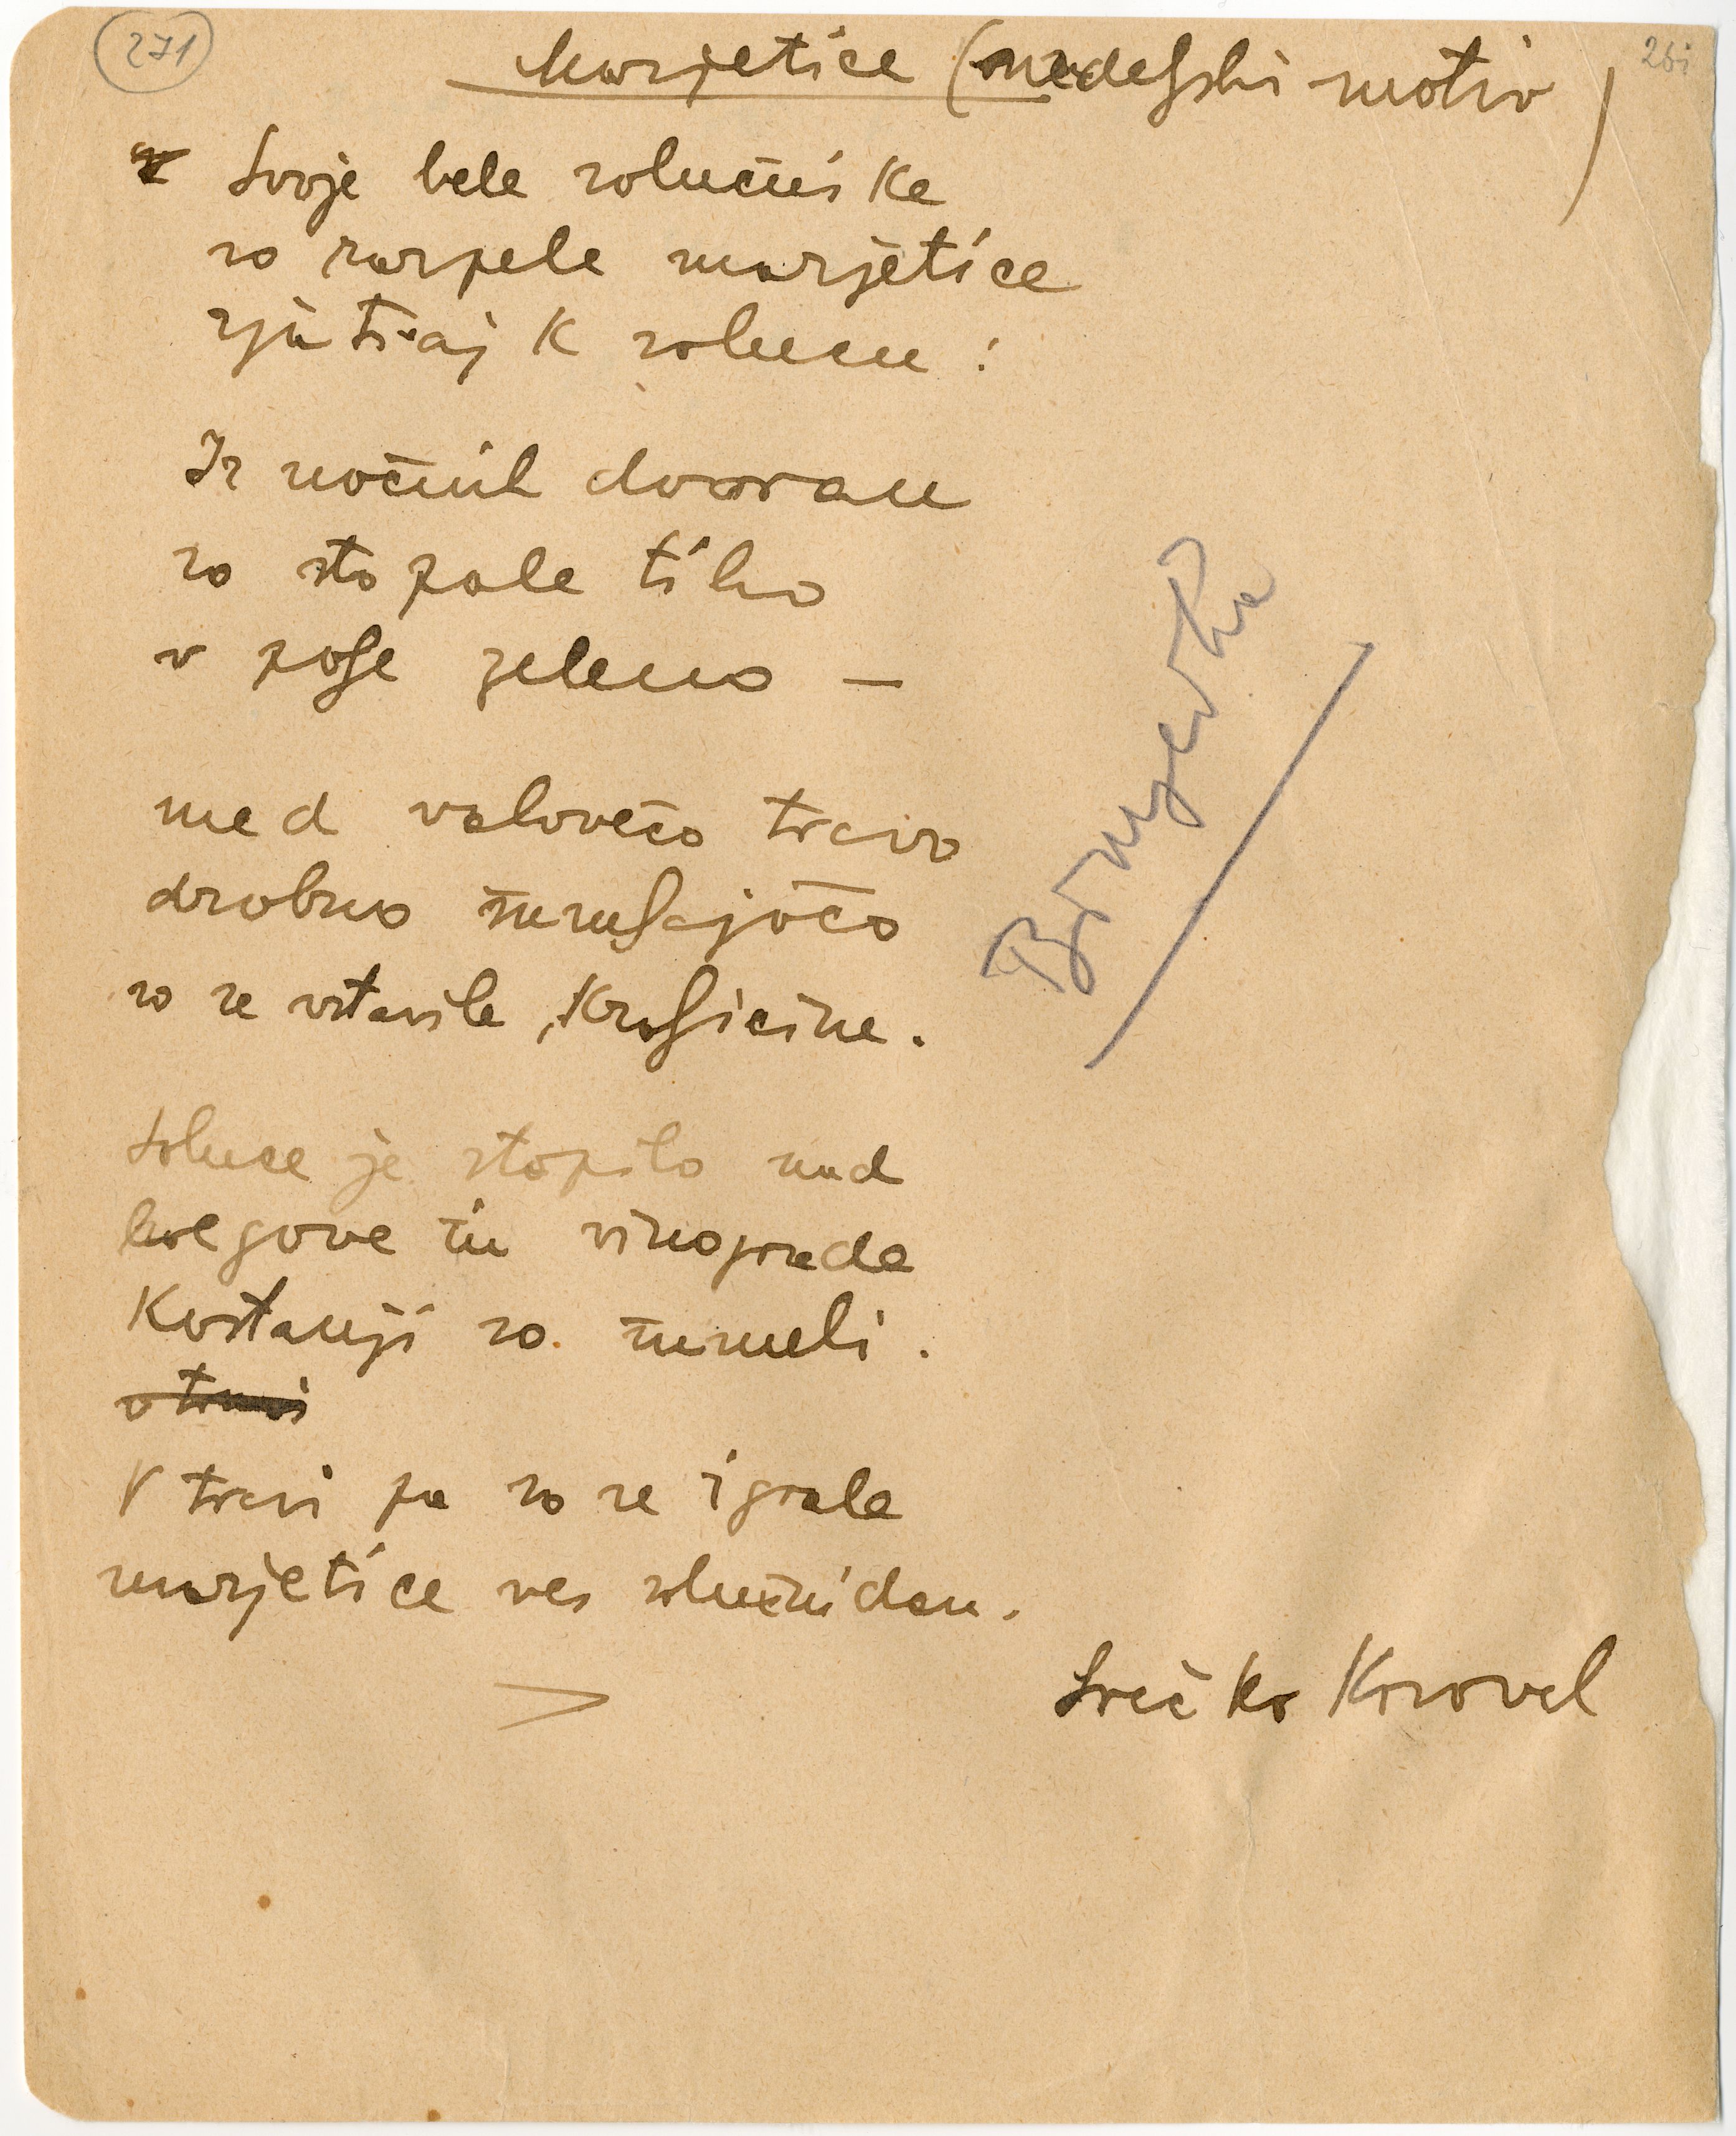 271
26i
Marjetice (nedeljski motiv)
Svoje bele solnčnike
so razpele marjetice
zjutraj k solncu:
Iz nočnih dvoran
so stopale tiho
v polje zeleno –
med valovečo travo
drobno šumljajočo
so se ustavile, kraljicine.
Solnce je stopilo nad
bregove in vinograde
Kostanji so šumeli.
v travi
V travi pa so se igrale
marjetice ves solnčni dan.
Srečko Kosovel